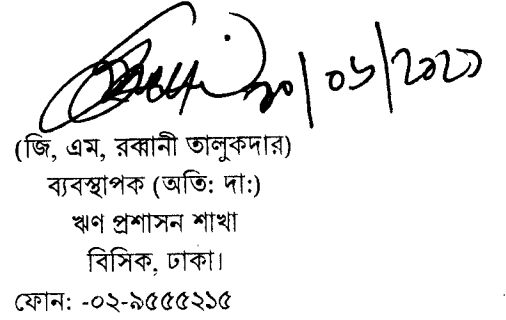 ২০/০৬/২০২১
(জি, এম, রব্বানী তালুকদার)
ব্যবস্থাপক (অতি: দা:)
ঋণ প্রশাসন শাখা
বিসিক, ঢাকা।
ফোন: -০২-৯৫৫৫২১৫